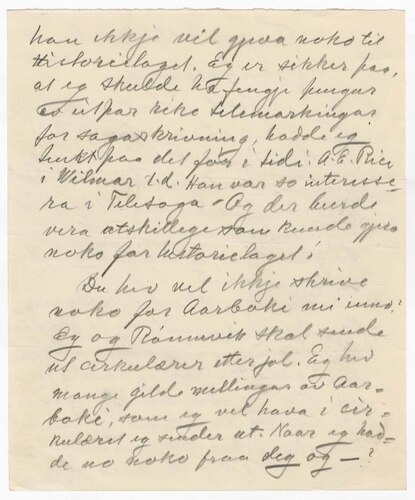 han ikkje vil gjeva noko til
Historielaget. Eg er sikker paa,
at eg skulde ha fengje pengar
av eit par rike telemarkingar
for sagaskrivning, hadde eg
tenkt paa det før i tidi. A. E. Rice
i Wilmar t.d. Han var so interesse-
ra i Telesoga - Og der burde
vera atskillege som kunde gjera
noko for historielaget i
Du hev vel ikkje skrive
noko for Aarboki mi enno?
Eg og Rønnevik skal sende
ut cirkulærer etter jol. Eg hev
mange gilde meldingar av Aar-
boki, som eg vel hava i cir-
kulæret eg sender ut. Naar eg had-
de no noko fraa deg og — ?